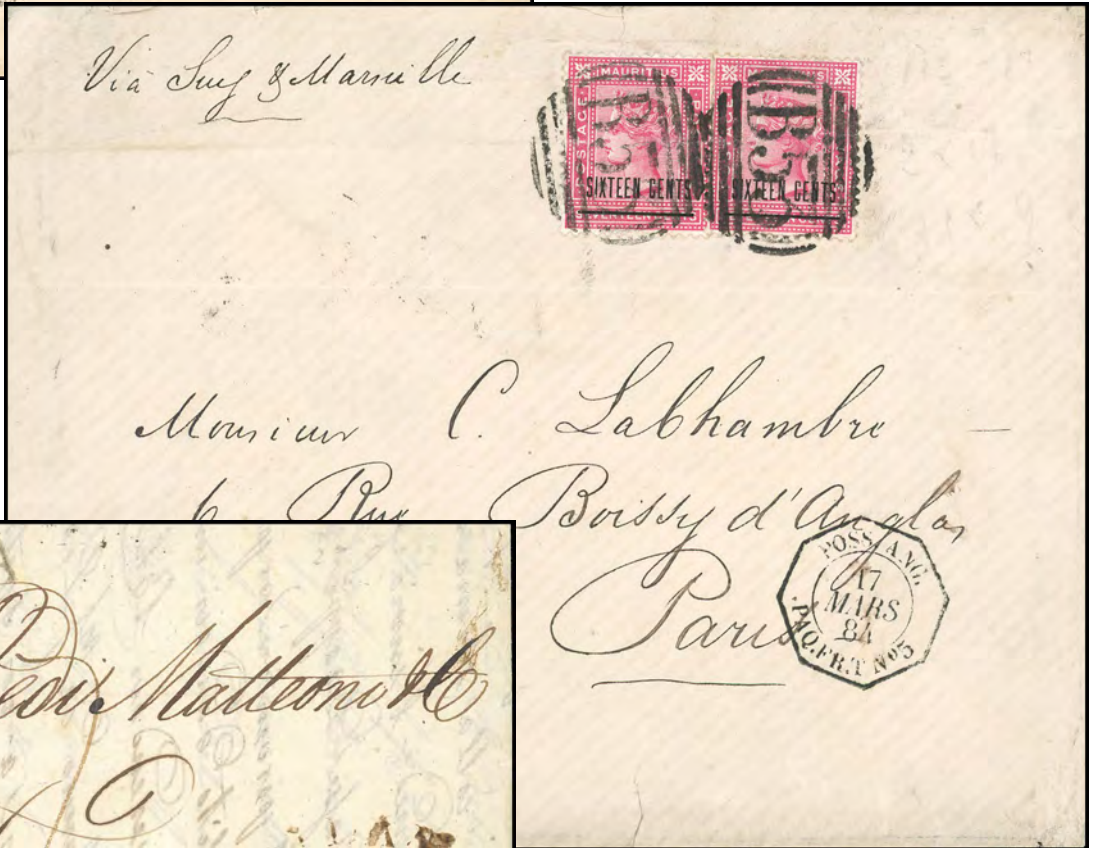 Viâ Suez & Marseille
MAURITIUS
SIXTEEN CENTS SIXTEEN CENTS
B53 B53
Monsieur C. Labhambre
6 Rue Boissy d'Anglas
Paris
POSS. ANG.
17
MARS
84
PAQ. FR. T Nº 5
Matteoni & C